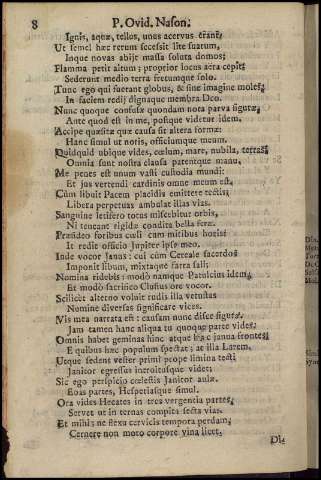 8 P. Ovid. Nason.
Ignis, aquæ, tellus, unus acervus erant:
Ut semel hæc rerum secessit lite suarum,
Inque novas abiit massa soluta domos;
Flamma petit altum; propior locus aera cepit;
Sederunt medio terra fretumque solo.
Tunc ego qui fueram globus, & sine imagine moles,
In faciem redij dignaque membra Deo.
Nunc quoque confusæ quondam nota parva figuræ,
Ante quod est in me, posique videtur idem.
Accipe quæsitæ quæ causa sit altera formæ:
Hanc simul ut noris, officiumque meum.
Quidquid ubique vides, cœlum, mare, nubila, terras,
Omnia sunt nostra clausa patentque manu.
Me penes est unum vasti custodia mundi:
Et jus vertendi cardinis omne meum est.
Cùm libuit Pacem placidis emittere tectis;
Libera perpetuas ambulat illas vias.
Sanguine letifero totus miscebitur orbis,
Ni teneant rigidæ condita bella seræ.
Præsideo foribus cœli cum mitibus horis:
It redit officio Jupiter ipse meo.
Inde vocor Janus: cui cùm Cereale sacerdos
Imponit libum, mixtaque farra sali;
Nomina ridebis: modò namque Patulcius idem,
Et modò sacrifico Clusius ore vocor.
Scilicet alterno voluit rudis illa vetustas
Nomine diversas significare vices.
Vis mea narrata est: causam nunc disce figuræ.
Jam tamen hanc aliqua tu quoque parte vides.
Omnis habet geminas hinc atque hinc janua frontes:
E quibus hæc populum spectat; at illa Larem.
Utque sedens vester primi prope limina tecti
Janitor egressus introitusque videt;
Sic ego perspicio cœlestis Janitor aulæ,
Eoas partes, Hesperiasque simul.
Ora vides Hecates in tres vergentia partes,
Servet ut in ternas compita secta vias.
Et mihi ne flexu cervicis tempora perdam,
Cernere non moto corpore vina licet.
Di-